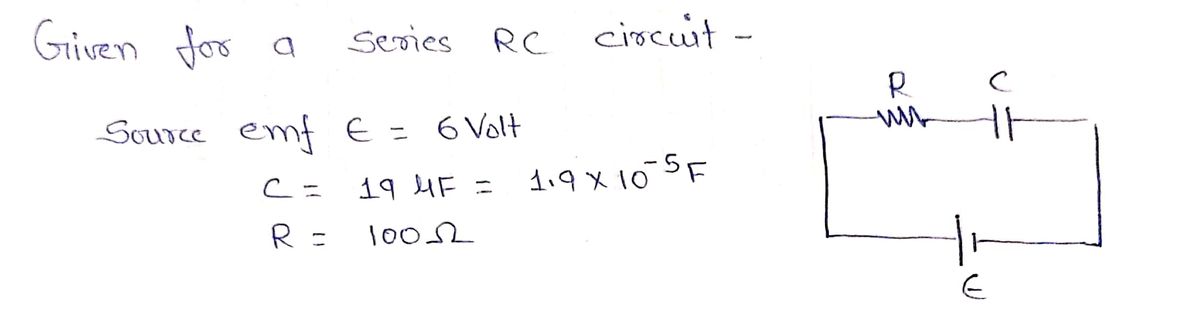 Given for a series RC circuit -
R C
Source emf ε = 6 Volt
C = 19 μF = 1.9 × 10⁻⁵ F
R = 100 Ω
ε